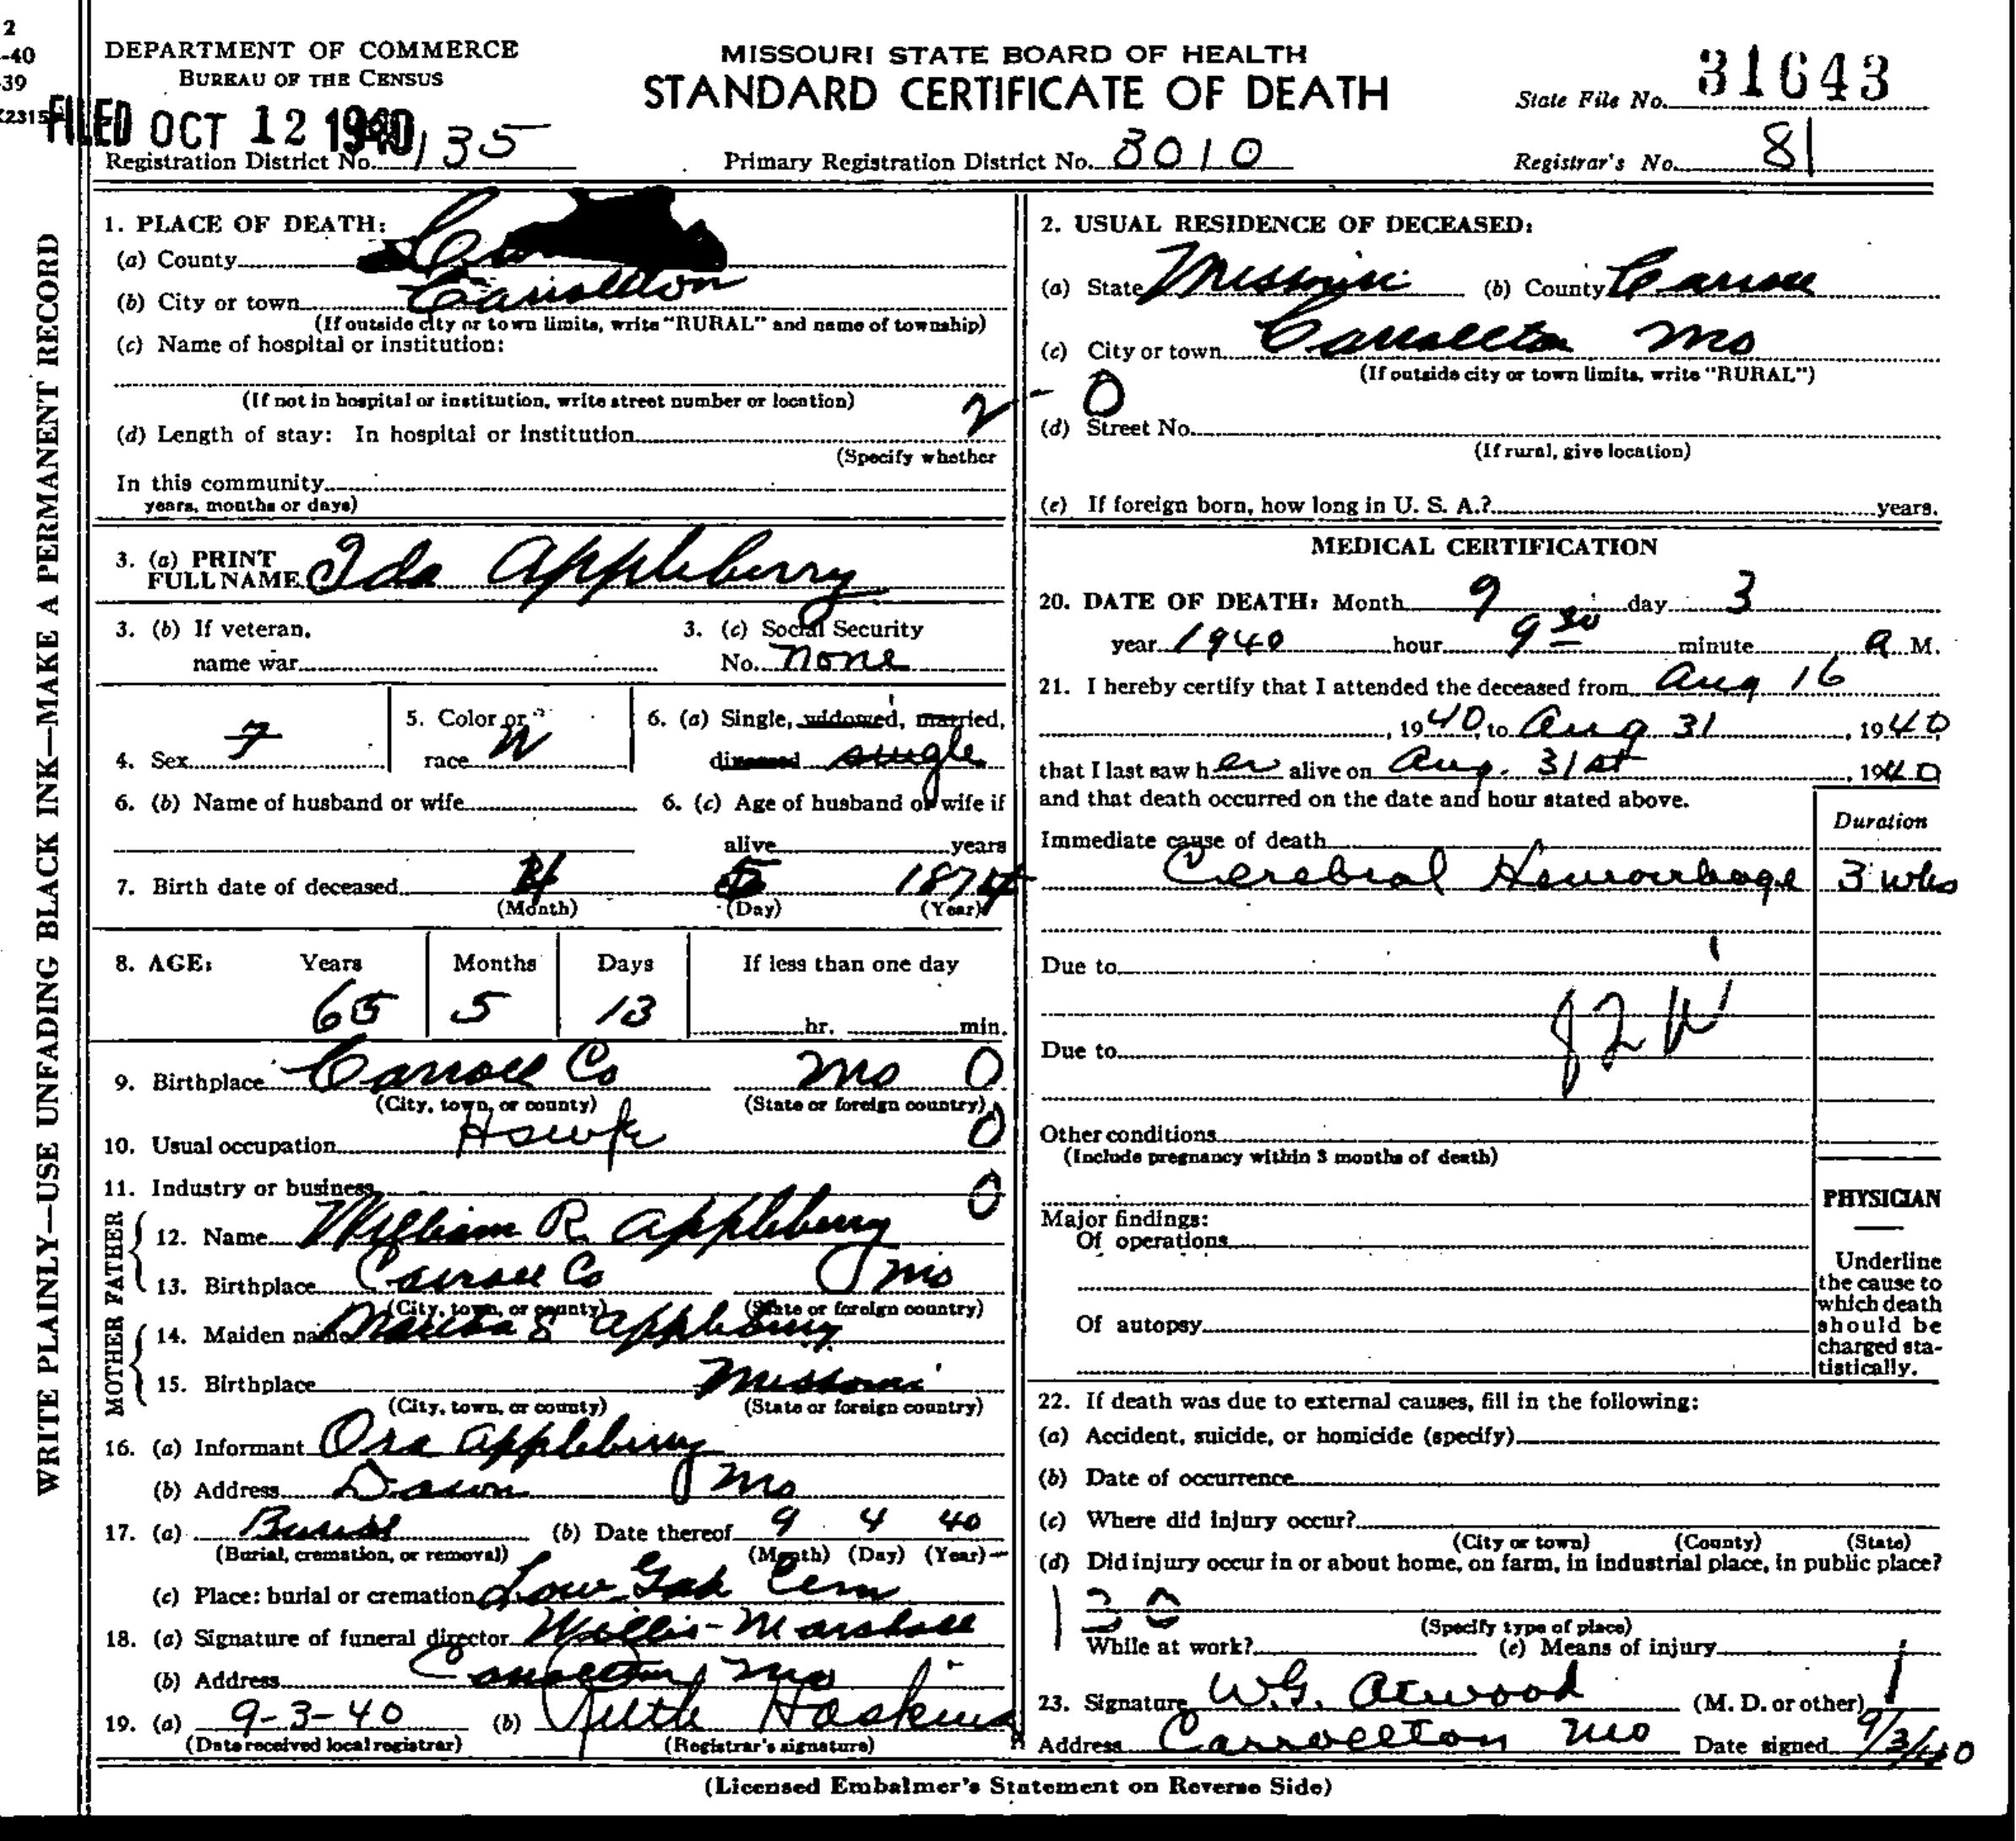 2
-40
-39
X2315
DEPARTMENT OF COMMERCE
BUREAU OF THE CENSUS
FILED OCT 12 1940
MISSOURI STATE BOARD OF HEALTH
STANDARD CERTIFICATE OF DEATH
State File No. 31643
Registration District No. 135
Primary Registration District No. 3010
Registrar's No. 81
WRITE PLAINLY—USE UNFADING BLACK INK—MAKE A PERMANENT RECORD
1. PLACE OF DEATH:
(a) County
(b) City or town Carrollton
(If outside city or town limits, write "RURAL" and name of township)
(c) Name of hospital or institution:
(If not in hospital or institution, write street number or location)
(d) Length of stay: In hospital or institution
(Specify whether
In this community
years, months or days)
2. USUAL RESIDENCE OF DECEASED:
(a) State Missouri (b) County Carroll
(c) City or town Carrollton Mo
(If outside city or town limits, write "RURAL")
2 - 0
(d) Street No.
(If rural, give location)
(e) If foreign born, how long in U. S. A.? years.
3. (a) PRINT
FULL NAME Ida Appleberry
3. (b) If veteran,
name war
3. (c) Social Security
No. none
4. Sex F
5. Color or
race W
6. (a) Single, widowed, married,
divorced single
6. (b) Name of husband or wife
6. (c) Age of husband or wife if
alive years
7. Birth date of deceased
187
(Month) (Day) (Year)
8. AGE: Years Months Days If less than one day
65 5 13 hr. min.
9. Birthplace Carroll Co Mo 0
(City, town, or county) (State or foreign country)
10. Usual occupation Hswk 0
11. Industry or business 0
FATHER
12. Name William R. Appleberry
13. Birthplace Carroll Co Mo
(City, town, or county) (State or foreign country)
MOTHER
14. Maiden name Martha S Appleberry
15. Birthplace Missouri
(City, town, or county) (State or foreign country)
16. (a) Informant Ora Appleberry
(b) Address Dawn Mo
17. (a) Burial (b) Date thereof 9 4 40
(Burial, cremation, or removal) (Month) (Day) (Year)
(c) Place: burial or cremation Low Gap Cem
18. (a) Signature of funeral director Willis-Marshall
(b) Address Carrollton, Mo
19. (a) 9-3-40 (b) Ruth Haskins
(Date received local registrar) (Registrar's signature)
MEDICAL CERTIFICATION
20. DATE OF DEATH: Month 9 day 3
year 1940 hour 9 30 minute a M.
21. I hereby certify that I attended the deceased from Aug 16
, 1940, to Aug 31, 1940
that I last saw her alive on Aug. 31st, 1940
and that death occurred on the date and hour stated above.
Duration
Immediate cause of death
Cerebral Hemorrhage 3 wks
Due to
Due to
Other conditions
(Include pregnancy within 3 months of death)
Major findings:
Of operations
Of autopsy
PHYSICIAN
Underline
the cause to
which death
should be
charged sta-
tistically.
22. If death was due to external causes, fill in the following:
(a) Accident, suicide, or homicide (specify)
(b) Date of occurrence
(c) Where did injury occur?
(City or town) (County) (State)
(d) Did injury occur in or about home, on farm, in industrial place, in public place?
(Specify type of place)
While at work? (e) Means of injury
23. Signature W.G. Atwood (M. D. or other)
Address Carrollton Mo Date signed 9/3/40
(Licensed Embalmer's Statement on Reverse Side)